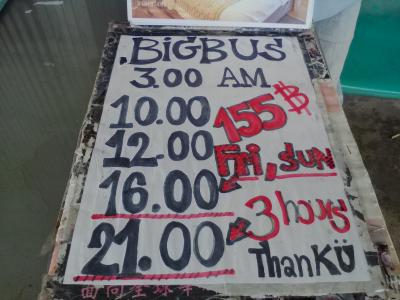 BIGBUS
3.00 AM
10.00
155฿
12.00
Fri, SUN
16.00
3 hours
21.00
ThanKÜ